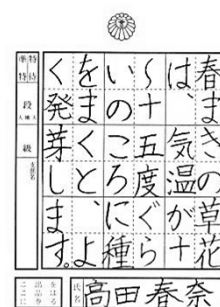 春まきの草花
は、気温が十
〜十五度ぐら
いのころに種
をまくと、よ
く発芽します。
段
級
支部名
氏名
高田春奈